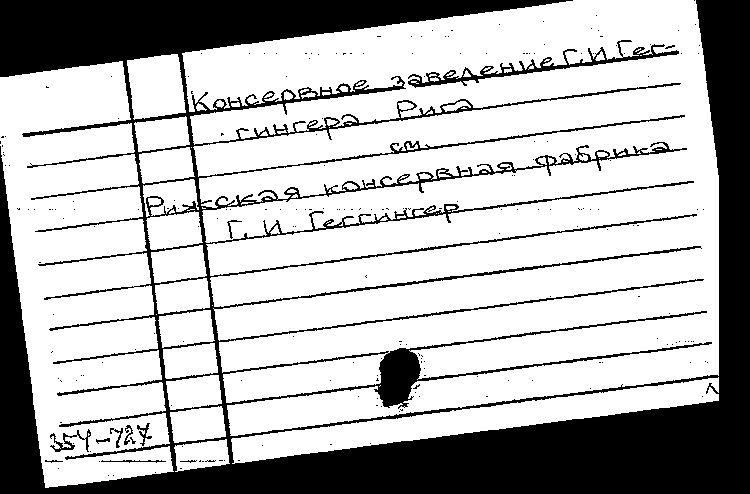 Консервное заведение Г.И.Гег-
гингера. Рига
см.
Рижская консервная фабрика
Г. И. Геггингер
354-727